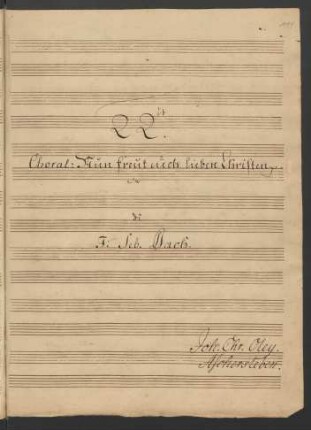 22.
Choral: Nun freut euch lieben Christen,
di
J: Seb. Bach.
Joh. Chr. Oley.
Aschersleben.